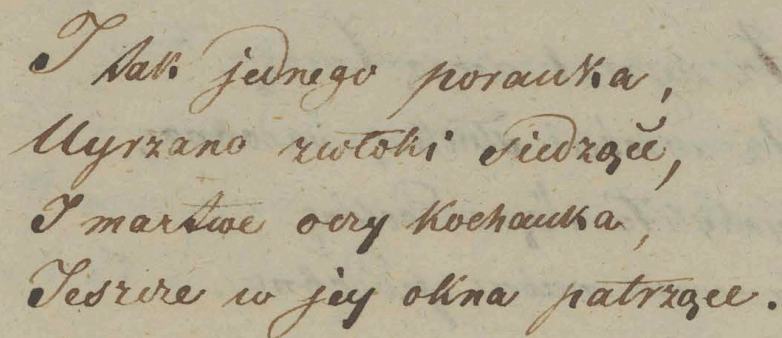 I tak jednego poranka,
Uyrzano zwłoki siedzące,
I martwe oczy kochanka,
Jeszcze w jey okna patrzące.